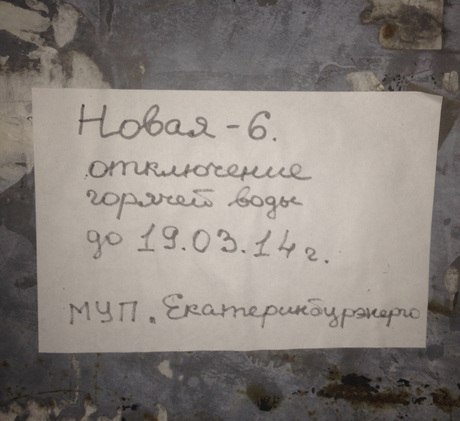 Новая - 6.
отключение
горячей воды
до 19.03.14 г.
МУП. Екатеринбурэнерго